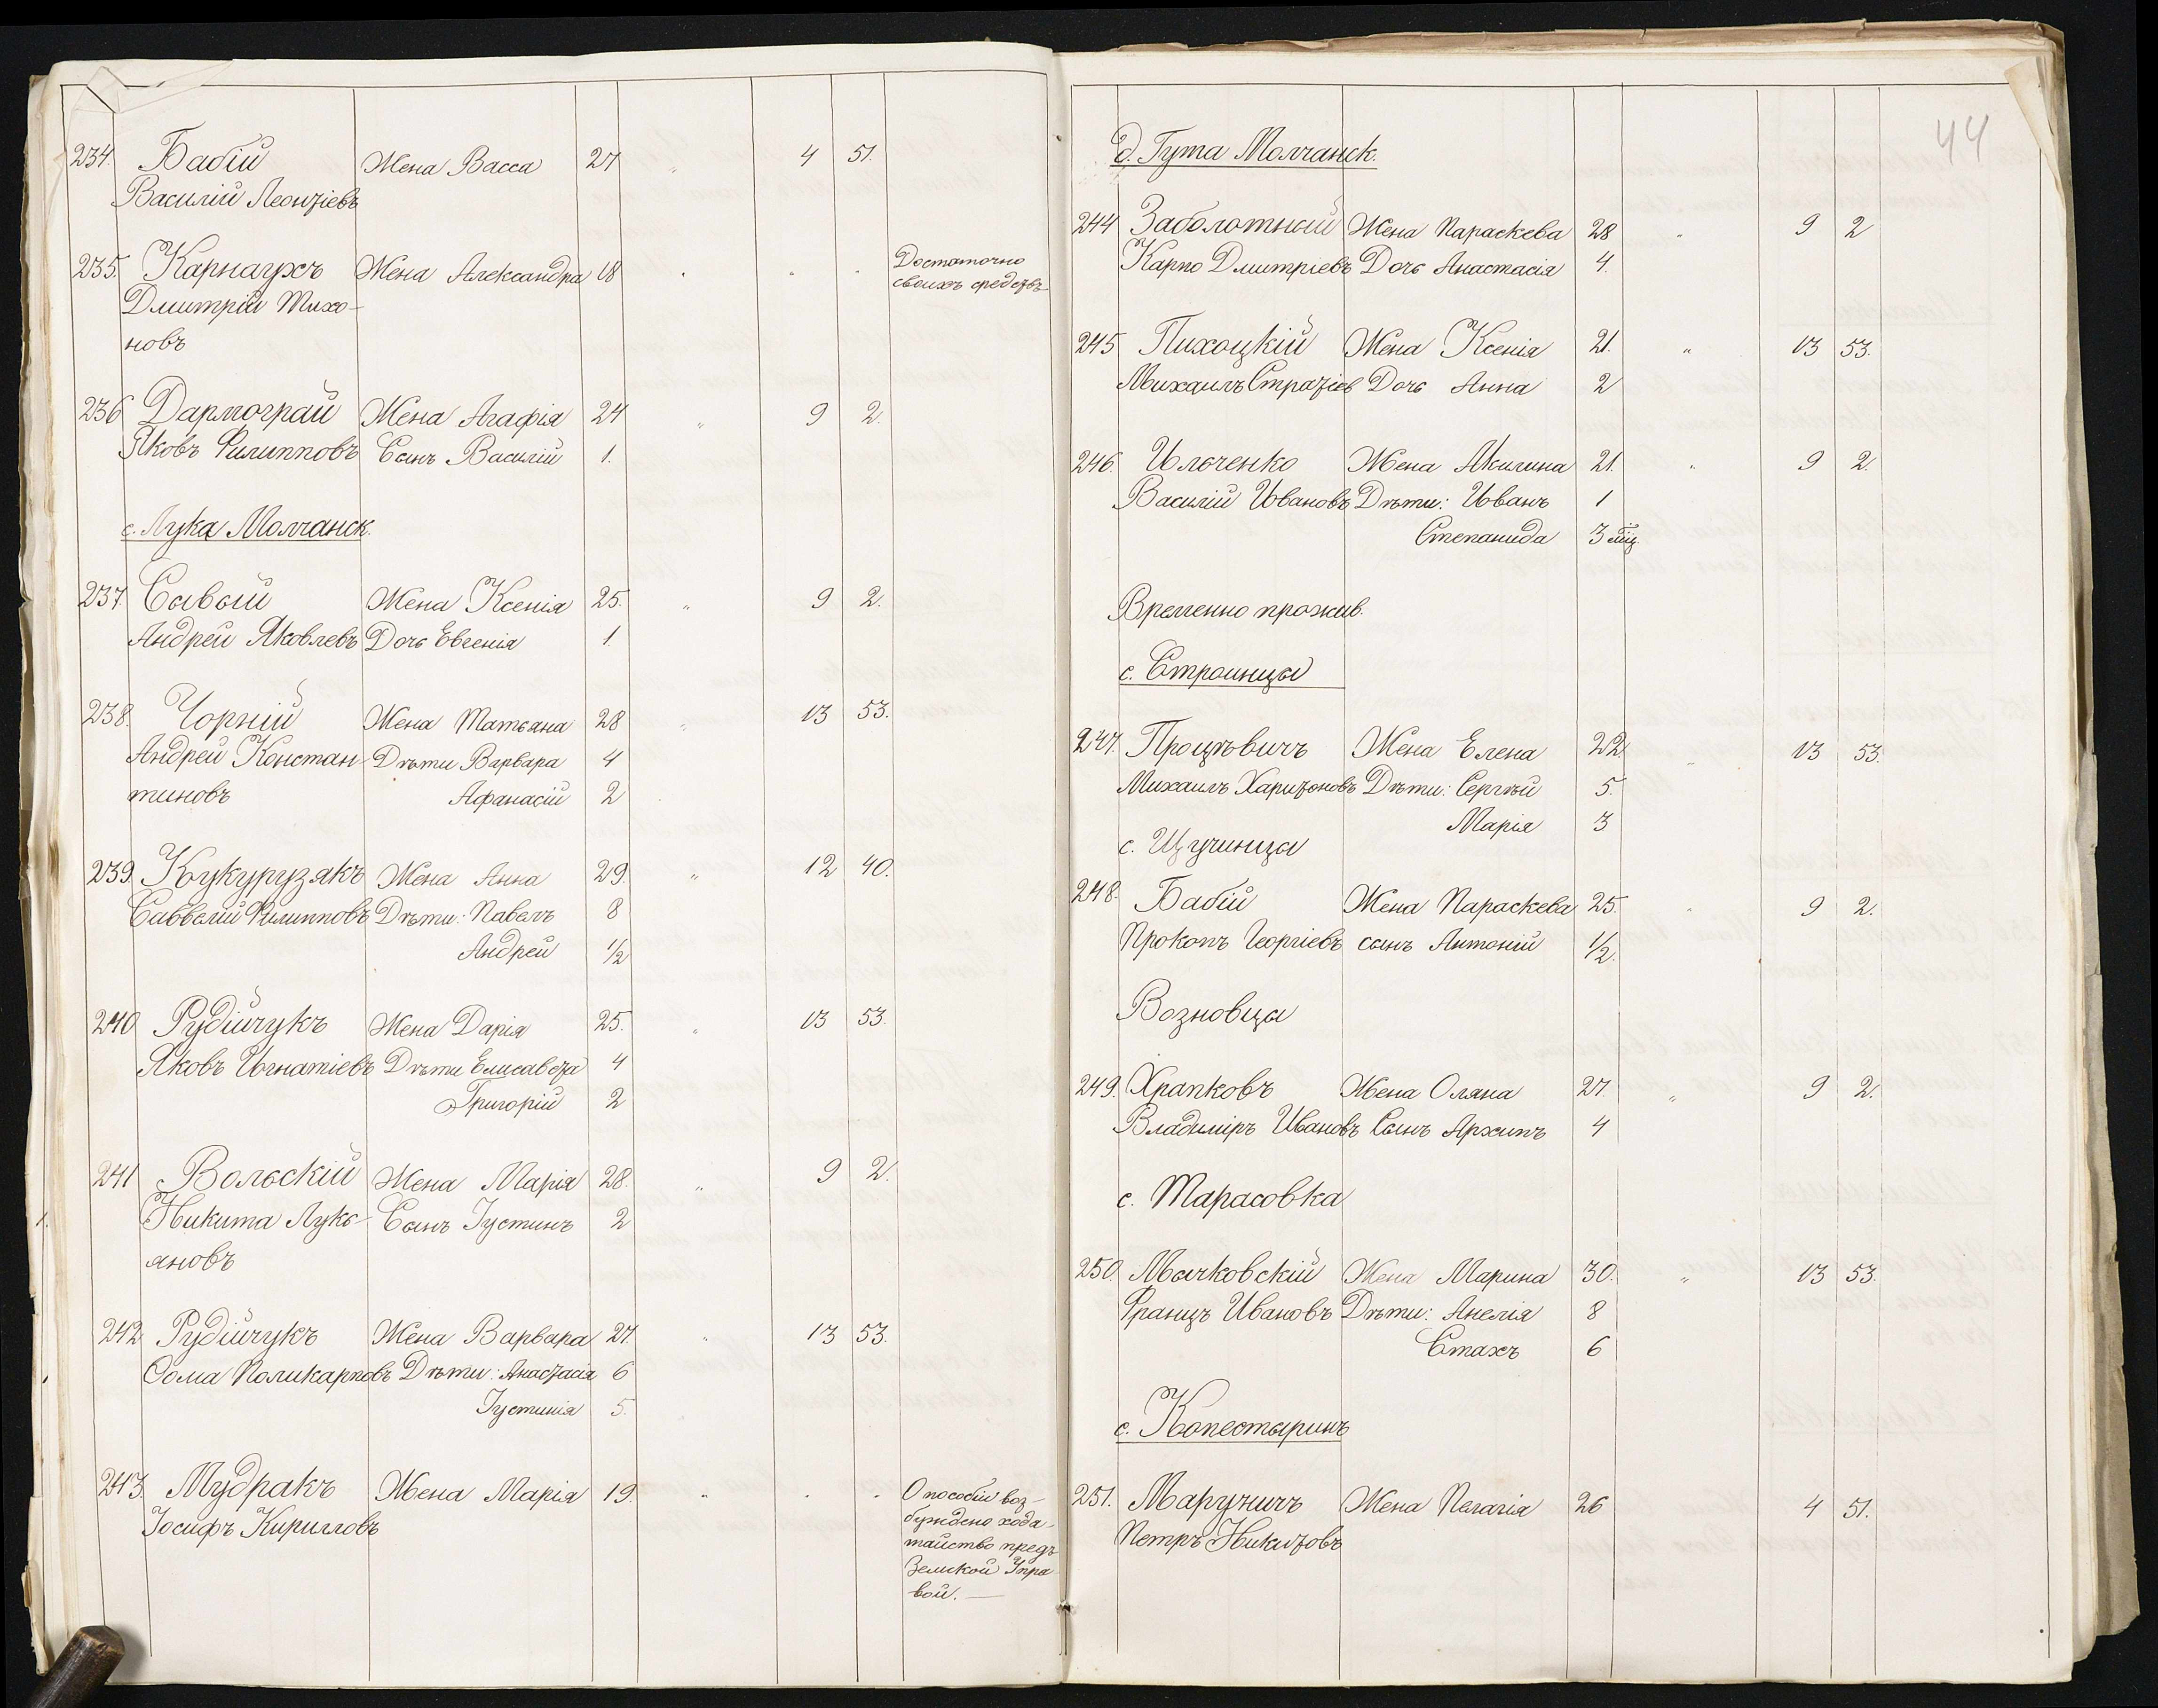 234. Бабій Жена Васса 27 " 4 51.
Василій Леонтіевъ
235. Карнаухъ Жена Александра 18 " " " Достаточно
своихъ средствъ
Дмитрій Тихо-
новъ
236 Дармограй Жена Агафія 24 " 9 2.
Яковъ Филипповъ Сынъ Василій 1.
с. Лука Молчанск.
237. Сывый Жена Ксенія 25. " 9 2.
Андрей Яковлевъ Дочь Евгенія 1.
238. Чорній Жена Татьяна 28 " 13 53.
Андрей Констан- Дѣти Варвара 4
тиновъ Афанасій 2
239. Кукурузякъ Жена Анна 29. " 12 40.
Савелій Филипповъ Дѣти: Павелъ 8
Андрей 1/2
240 Рудійчукъ Жена Дарія 25. " 13 53.
Яковъ Игнатіевъ Дѣти Елисавета 4
Григорій 2
241 Вольскій Жена Марія 28. " 9 2.
Никита Лукь- Сынъ Іустинъ 2
яновъ
242 Рудійчукъ Жена Варвара 27. " 13 53.
Ѳома Поликарповъ Дѣти: Анастасія 6
Іустинія 5.
243. Мудракъ Жена Марія 19. " " " О пособіи воз-
Іосифъ Кирилловъ буждено хода-
тайство предъ
Земской Упра
вой. —
44
д. Гута Молчанск.
244 Заболотный Жена Параскева 28 " 9 2
Карпо Дмитріевъ Дочь Анастасія 4.
245 Пихоцкій Жена Ксенія 21. " 13 53.
Михаилъ Дочь Анна 2
246. Ильченко Жена Акилина 21. " 9 2.
Василій Ивановъ Дѣти: Иванъ 1
Степанида 3 мѣц.
Временно прожив.
с. Строинцы
247. Процѣвичъ Жена Елена 22. " 13 53.
Михаилъ Харитоновъ Дѣти: Сергѣй 5.
Марія 3
с. Щучинцы
248. Бабій Жена Параскева 25. " 9 2.
Прокопъ Георгіевъ сынъ Антоній 1/2.
Возновцы
249. Храпковъ Жена Оляна 27. " 9 2.
Владиміръ Ивановъ Сынъ Архипъ 4
с. Тарасовка
250. Мычковскій Жена Марина 30. " 13 53.
Францъ Ивановъ Дѣти: Анелія 8
Стахъ 6
с. Копестыринъ
251. Маручичъ Жена Пелагія 26 4 51.
Петръ Никитовъ